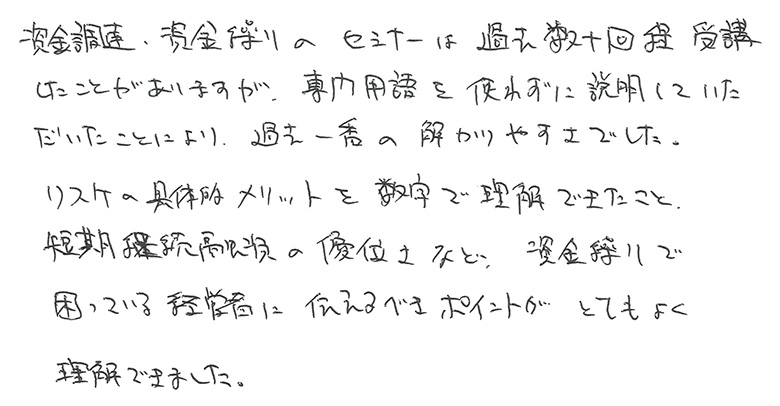 資金調達、資金繰りの セミナーは 過去数十回程 受講
したことがありますが、専門用語を 使わずに 説明していた
だいたことにより、過去一番の 解かりやすさでした。
リスケの具体的メリットを 数字で 理解できたこと、
短期継続の優位さなど、資金繰りで
困っている 経営者に 伝えるべき ポイントが とてもよく
理解できました。